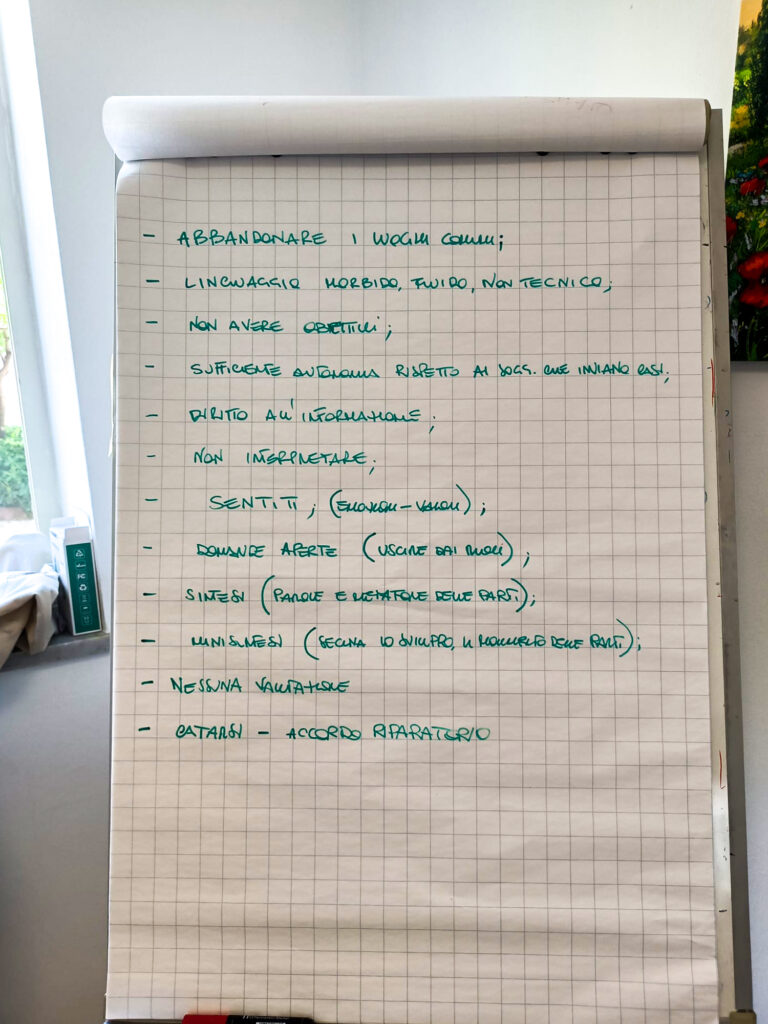 - ABBANDONARE I LUOGHI COMUNI;
- LINGUAGGIO MORBIDO, FLUIDO, NON TECNICO;
- NON AVERE OBIETTIVI;
- SUFFICIENTE AUTONOMIA RISPETTO AI SOGG. CHE INVIANO CASI;
- DIRITTO ALL'INFORMAZIONE;
- NON INTERPRETARE;
- SENTITI; (EMOZIONI - VALORI);
- DOMANDE APERTE (USCIRE DAI RUOLI);
- SINTESI (PAROLE E METAFORE DELLE PARTI);
- MINISINTESI (SEGNA LO SVILUPPO, IL MOVIMENTO DELLE PARTI);
- NESSUNA VALUTAZIONE
- CATARSI - ACCORDO RIPARATORIO